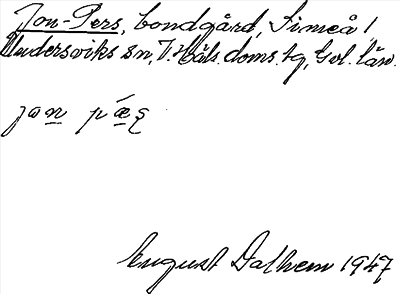 Jon-Pers, bondgård, Simeå 1
Undersviks sn, V. Häls. doms. tg, Gvl. län.
jon pæʂ
August Dalhem 1947